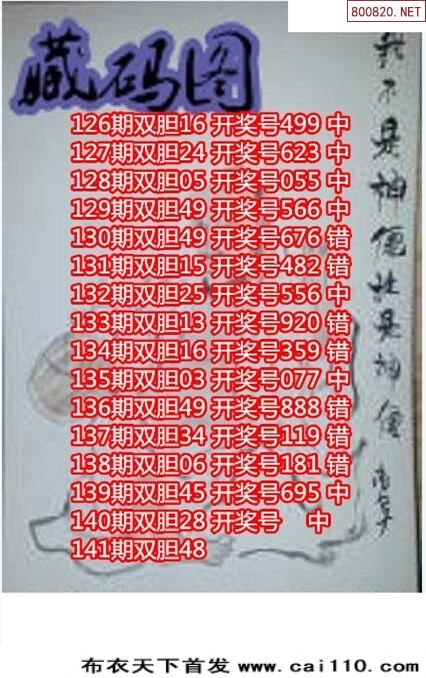 800820.NET
藏码图
126期双胆16 开奖号499 中
127期双胆24 开奖号623 中
128期双胆05 开奖号055 中
129期双胆49 开奖号566 中
130期双胆49 开奖号676 错
131期双胆15 开奖号482 错
132期双胆25 开奖号556 中
133期双胆13 开奖号920 错
134期双胆16 开奖号359 错
135期双胆03 开奖号077 中
136期双胆49 开奖号888 错
137期双胆34 开奖号119 错
138期双胆06 开奖号181 错
139期双胆45 开奖号695 中
140期双胆28 开奖号 中
141期双胆48
我不是神便社是神仙
布衣天下首发 www.cai110.com